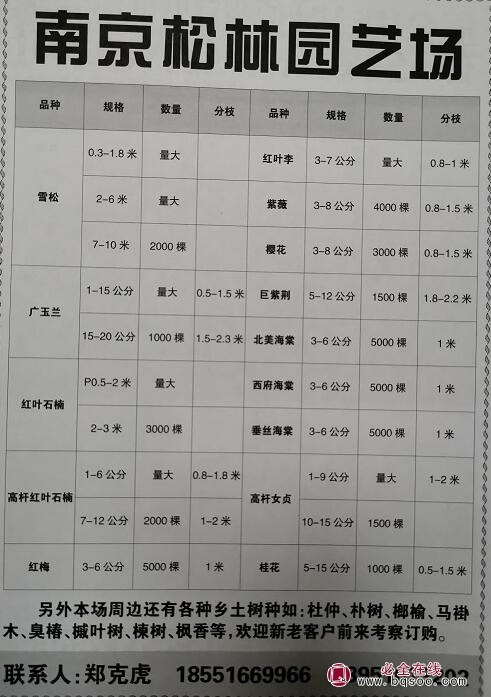 南京松林园艺场
品种 规格 数量 分枝 品种 规格 数量 分枝
雪松 0.3-1.8 米 量大 红叶李 3-7 公分 量大 0.8-1 米
2-6 米 量大 紫薇 3-8 公分 4000 棵 0.8-1.5 米
7-10 米 2000 棵 樱花 3-8 公分 3000 棵 0.8-1.5 米
广玉兰 1-15 公分 量大 0.5-1.5 米 巨紫荆 5-12 公分 1500 棵 1.8-2.2 米
15-20 公分 1000 棵 1.5-2.3 米 北美海棠 3-6 公分 5000 棵 1 米
红叶石楠 P0.5-2 米 量大 西府海棠 3-6 公分 5000 棵 1 米
2-3 米 3000 棵 垂丝海棠 3-6 公分 5000 棵 1 米
高杆红叶石楠 1-6 公分 量大 0.8-1.8 米 高杆女贞 1-9 公分 量大 1-2 米
7-12 公分 2000 棵 1-2 米 10-15 公分 1500 棵
红梅 3-6 公分 5000 棵 1 米 桂花 5-15 公分 1000 棵 0.5-1.5 米
另外本场周边还有各种乡土树种如:杜仲、朴树、榔榆、马褂
木、臭椿、槭叶树、楝树、枫香等,欢迎新老客户前来考察订购。
联系人:郑克虎 18551669966
必全在线
www.bqsoo.com